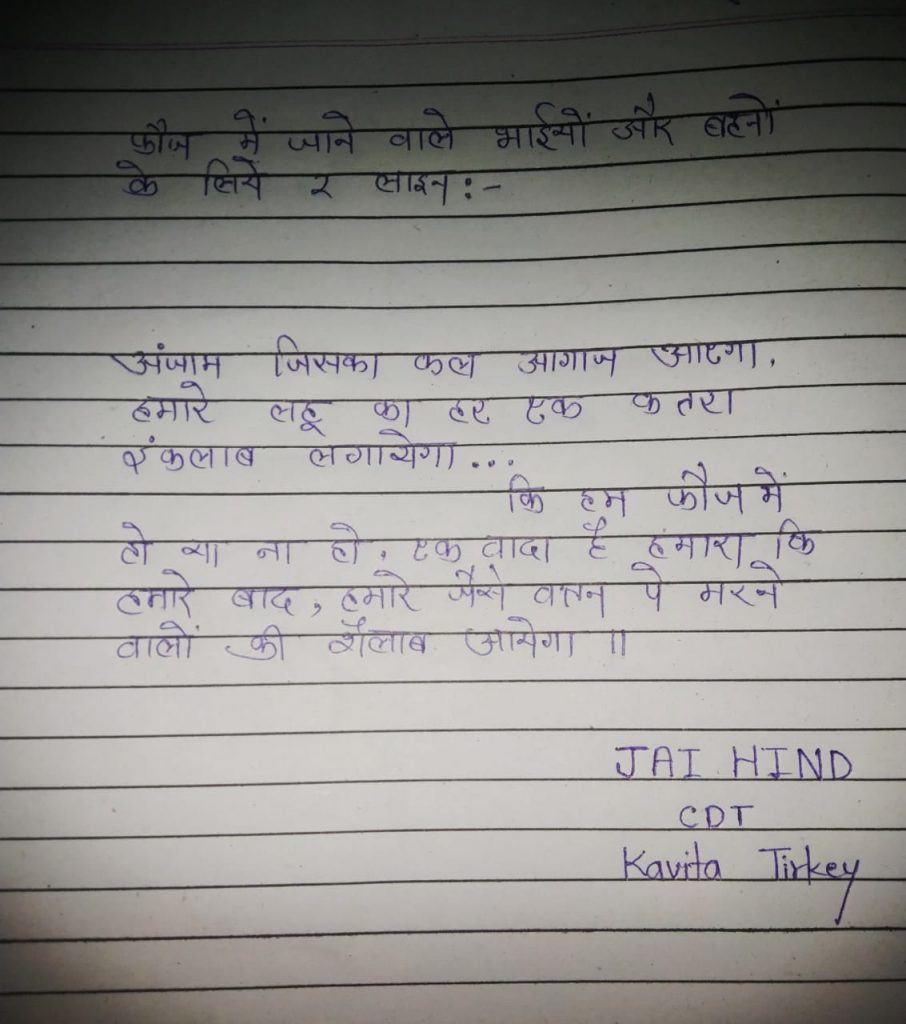 फौज में जाने वाले भाईयों और बहनों
के लिये २ लाइन :-
अंजाम जिसका कल आगाज आएगा,
हमारे लहू का हर एक कतरा
इंकलाब लगायेगा...
कि हम फौज में
हो या ना हो, एक वादा है हमारा कि
हमारे बाद, हमारे जैसे वतन पे मरने
वालों की शैलाब आयेगा ॥
JAI HIND
CDT
Kavita Tirkey